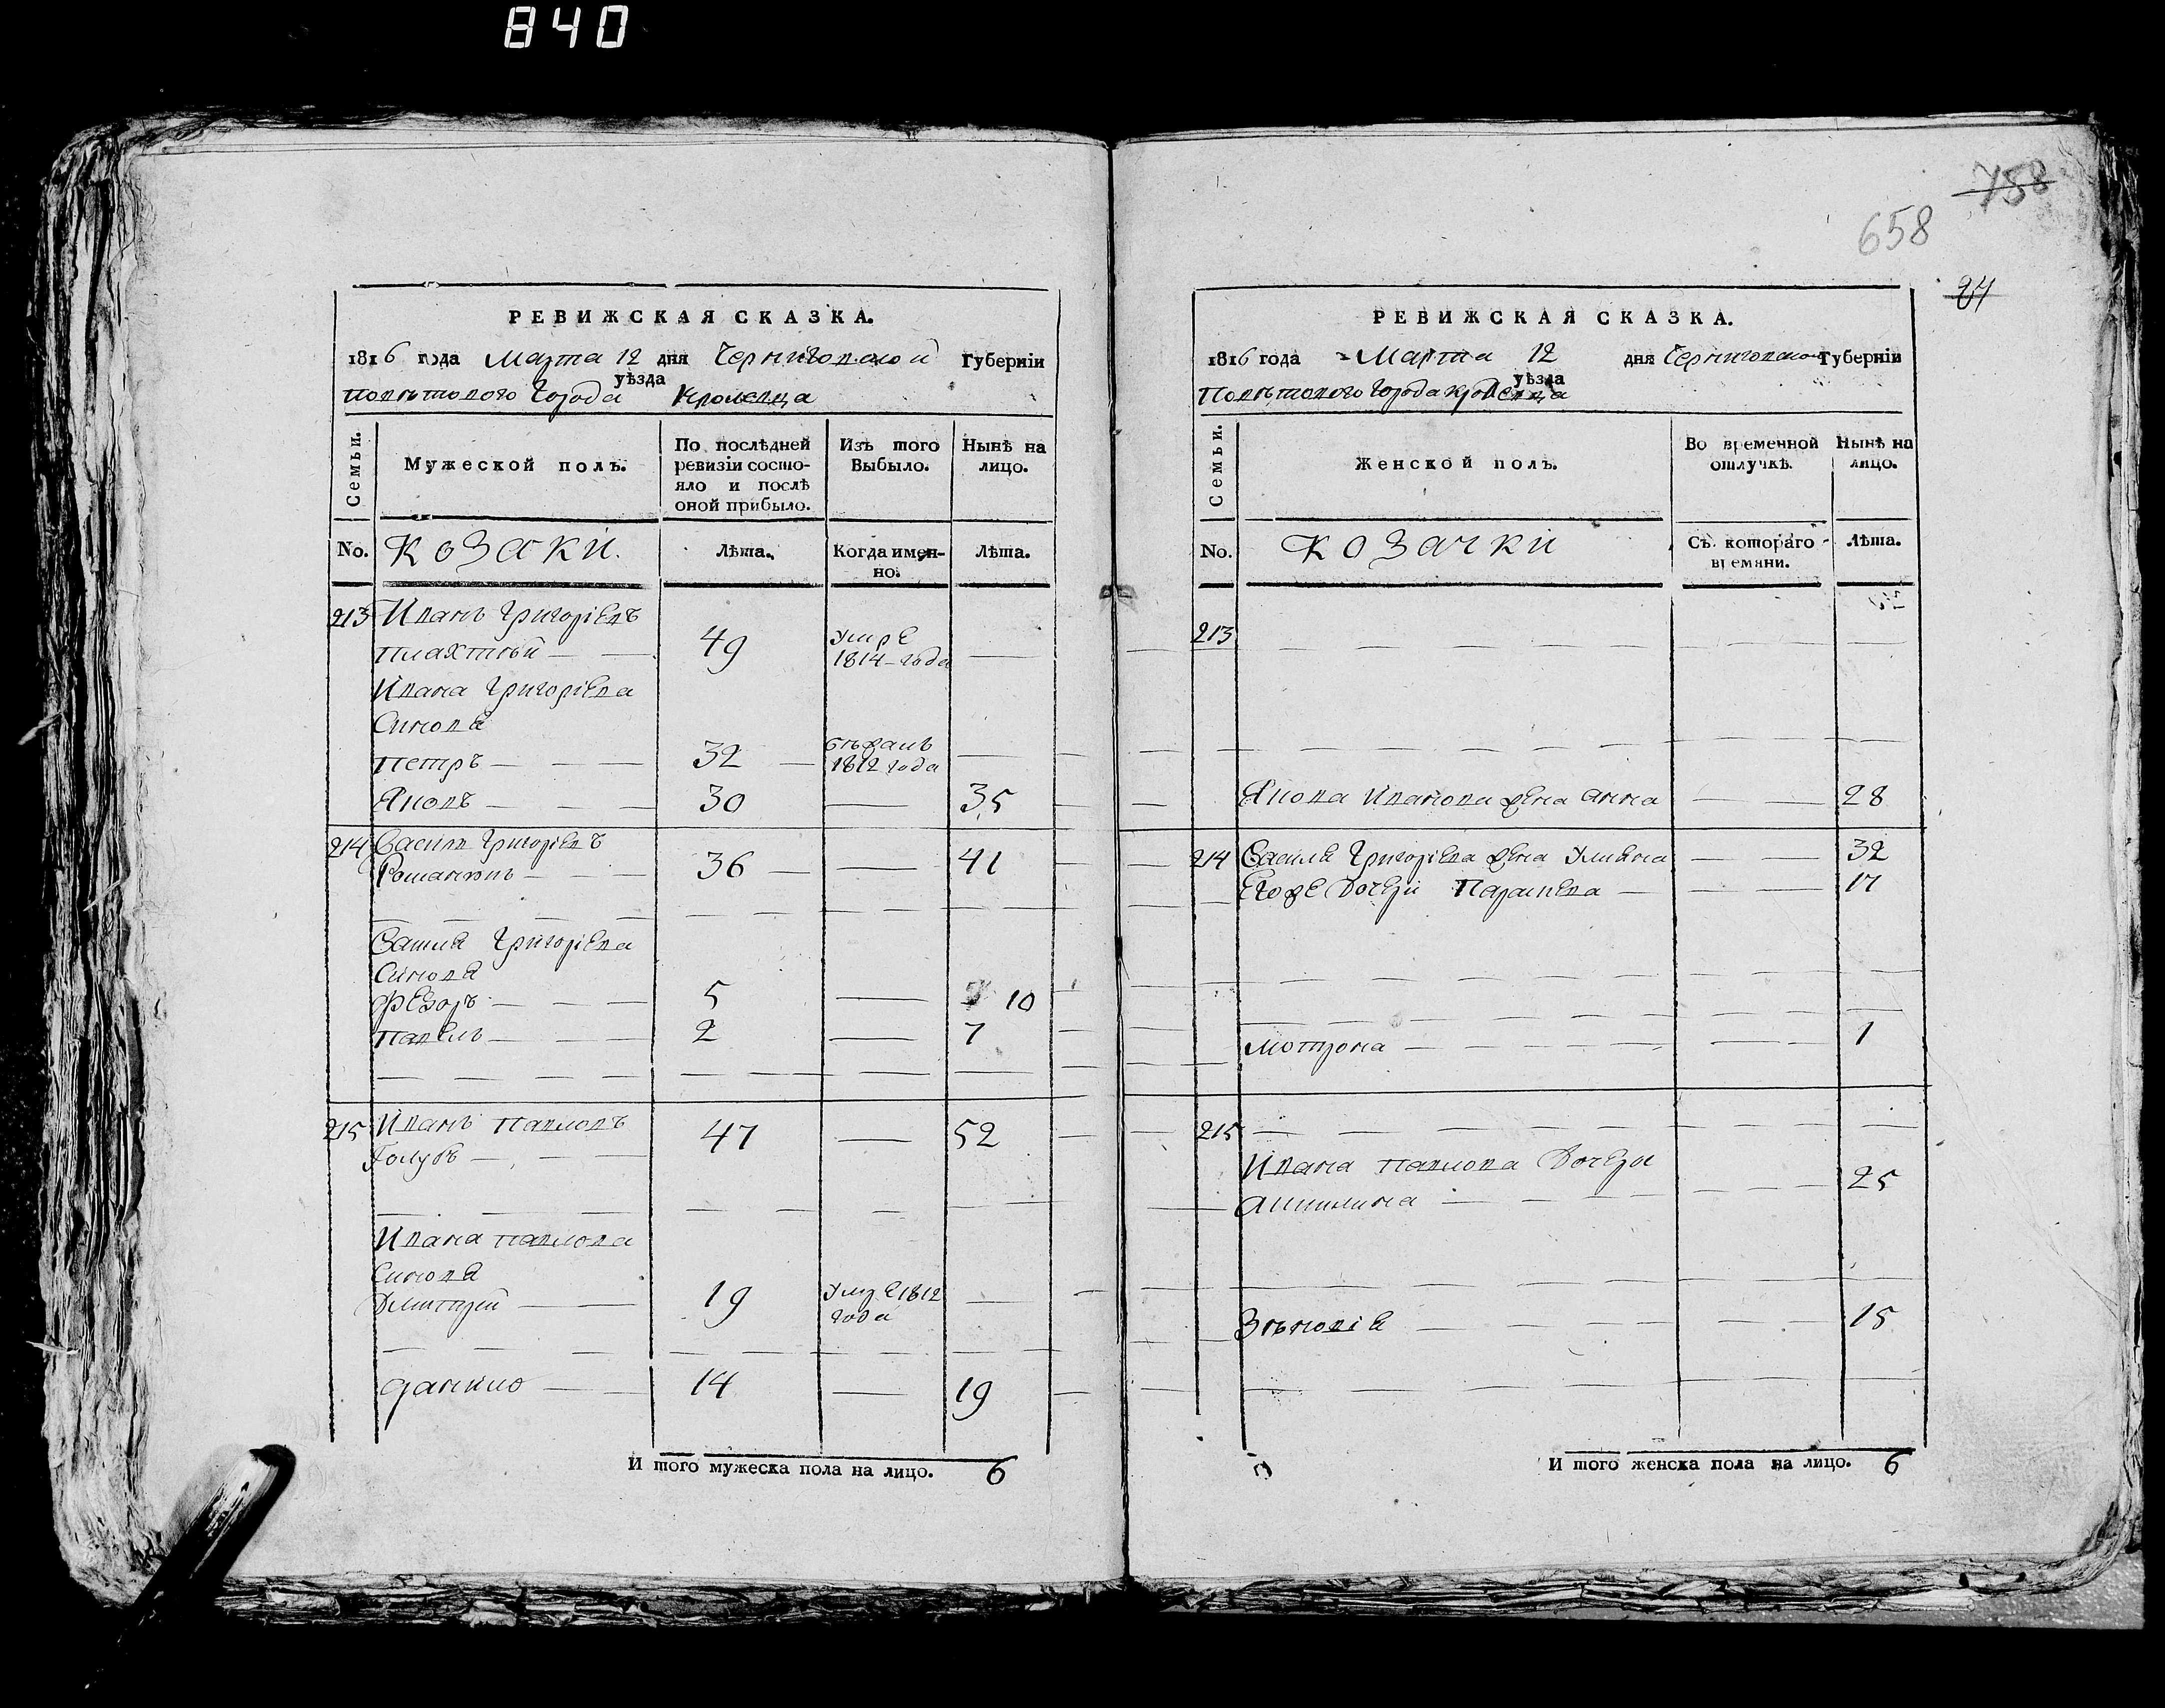 840
758
658
24
РЕВИЖСКАЯ СКАЗКА.
1816 года Марта 12 дня Черниговской Губерніи
уѣзда
Поветового Города Кролевца
Семьи.
Мужеской полъ.
По послѣдней ревизіи состо-
яло и послѣ
оной прибыло.
Изъ того
Выбыло.
Нынѣ на
лицо.
No. Козаки. Лѣта. Когда имен-
но. Лѣта.
213 Иванъ Григоріевъ
Плахтій 49 умре
1814 года
Ивана Григоріева
Синове
Петръ 32 бежалъ
1812 года
Яковъ 30 35
214 Василъ Григоріевъ
36 41
Василя Григоріева
Синове
Федоръ 5 10
Павелъ 2 7
215 Иванъ Павловъ
Голубъ 47 52
Ивана Павлова
Синове
Дмитрий 19 Умре 1812
года
Данило 14 19
И того мужеска пола на лицо. 6
РЕВИЖСКАЯ СКАЗКА.
1816 года Марта 12 дня Черниговской Губерніи
уѣзда
Поветового Города Кролевца
Семьи.
Женской полъ.
Во временной
отлучкѣ.
Нынѣ на
лицо.
No. Козачки Съ котораго
времяни. Лѣта.
213
Якова Иванова жена Анна 28
214 Василя Григоріева жена Уляна 32
Его же Дочери Парасκева 17
Мотрона 1
215
Ивана Павлова Дочери
Акилина 25
Зѣновіа 15
И того женска пола на лицо. 6